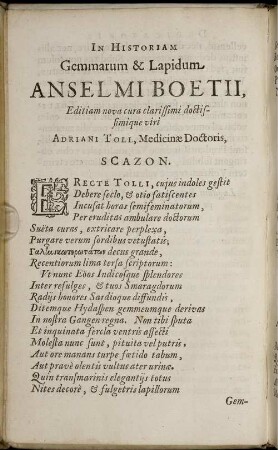 IN HISTORIAM
Gemmarum & Lapidum
ANSELMI BOETII,
Editiam nova cura clarissimi doctis-
simique viri
ADRIANI TOLI, Medicinæ Doctoris,
SCAZON.
ERECTE TOLLI, cujus indoles gestit
Debere seclo, & otio fatiscentes
Incusat horas semifeminatorum,
Per eruditas ambulare doctorum
Suëta curas, extricare perplexa,
Purgare verum sordibus vetustatis;
decus grande,
Recentiorum lima tersa scriptorum:
Ut nunc Eöos Indicosque splendores
Inter refulges, & tuos Smaragdorum
Radijs honores Sardioque diffundis,
Ditemque Hydaspen gemmeumque derivas
In nostra Gangen regna. Non tibi sputa
Et inquinata fercla ventris affecti
Molesta nunc sunt, pituita vel putris,
Aut ore manans turpe fœtido tabum,
Aut pravè olentis vultus ater urinæ.
Quin transmarinis elegantijs totus
Nites decorè, & fulgetris lapillorum
Gem-